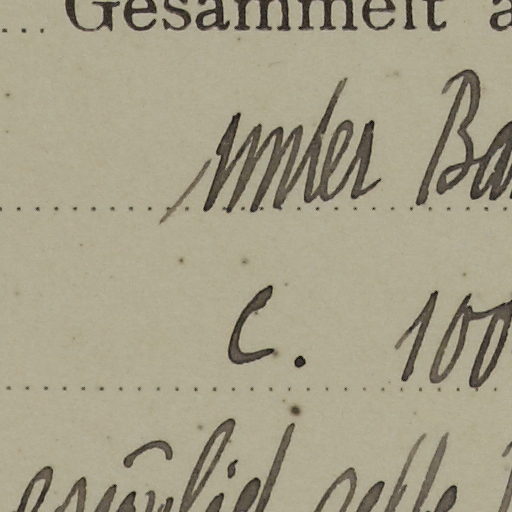 Gesammelt a
unter Ba
c. 100